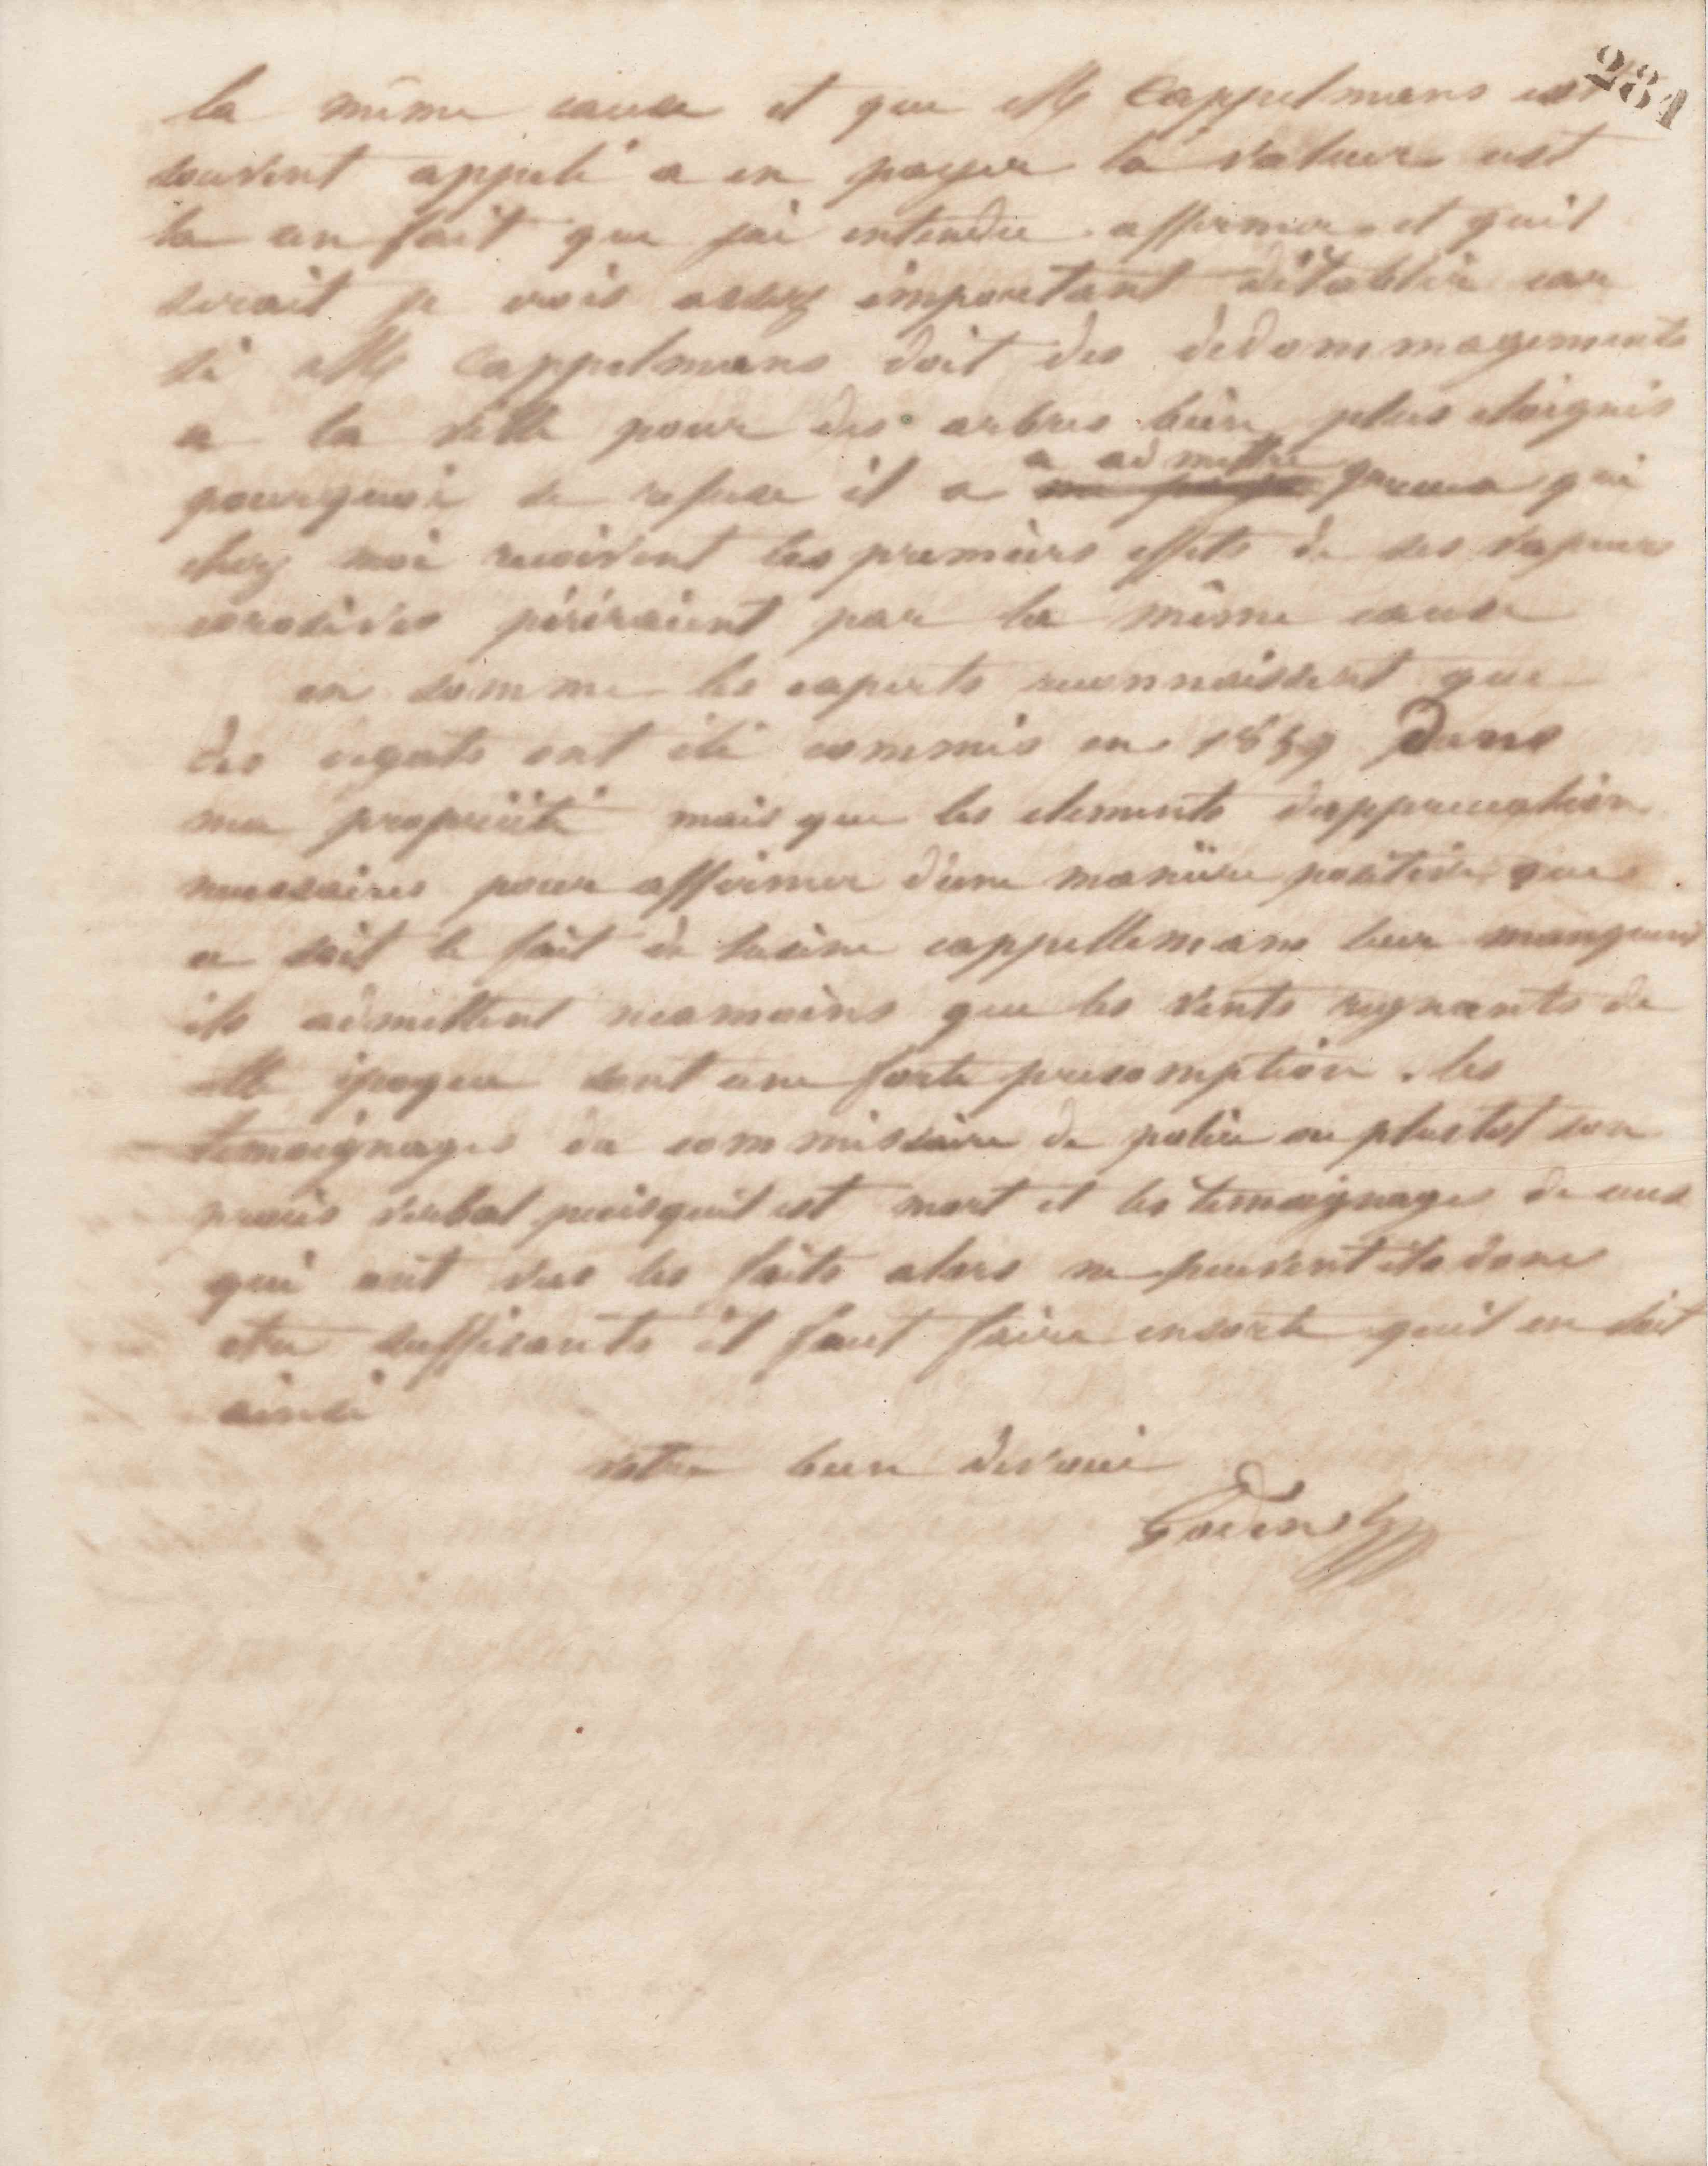 281
la même cause et que Mr Cappelmans est
souvent appelé a en payer la valeur cest
la un fait que jai entendu affirmer et quil
serait je crois assez important détablir car
si Mr Cappelmans doit des dedommagements
a la ville pour des arbres bien plus eloignés
pourquoi se refuse il a
a admettre
que ceux qui
chez moi recoivent les premiers effets de ses vapeurs
corosives périraient par la même cause
en somme les experts reconnaissent que
des degats ont été commis en 1859 Dans
ma propriété mais que les elements dappreciation
necessaires pour affirmer dune manière positive que
ce soit le fait de lusine cappellemans leur manquent
ils admettent neamoins que les vents regnants de
cette époque sont une forte presomption . les
temoignages du commissaire de police ou plustot son
procès verbal puisquil est mort et les temoignages de ceux
qui ont vus les faits alors ne peuvent ils donc
etre suffisants il faut faire ensorte quil en soit
ainsi
votre bien devoué
Godin